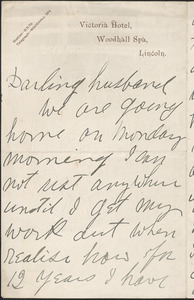 Victoria Hotel,
Woodhall Spa,
Lincoln.
Darling husband
we are going
home on Monday
morning I can
not rest anywhere
until I get my
work out when
realise how for
12 years I have